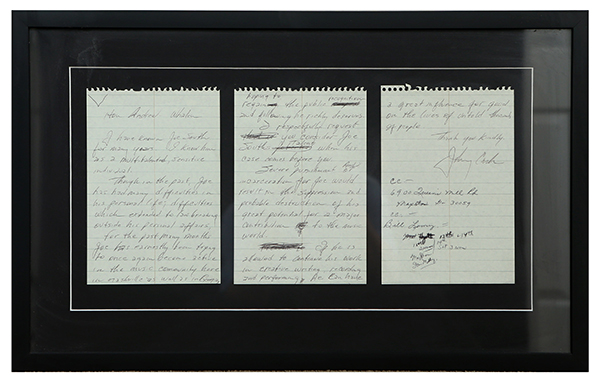 Hon Andrew Whalen
I have known Joe South
for many years. I know him
as a multi-talented, sensitive
individual.
Though in the past, Joe
has had many difficulties in
his personal life; difficulties
which extended to
outside his personal affairs,
for the past many months
Joe has earnestly been trying
to once again become active
in the music community here
in Nashville as well as
trying to
regain the public recognition
and following he richly deserves
I respectfully request
you consider Joe
South's when his
case comes before you.
Severe punishment
incarceration for Joe would
result in the suppression and
probable destruction of his
great potential for a major
contribution to the music
world.
If he is
allowed to continue his work
in creative writing, recording
and performing, he can have
a great influence for good
on the lives of untold thousands
of people
Thank you kindly
Johnny Cash
CC -
Mill Rd
CC -
Bill Lowery